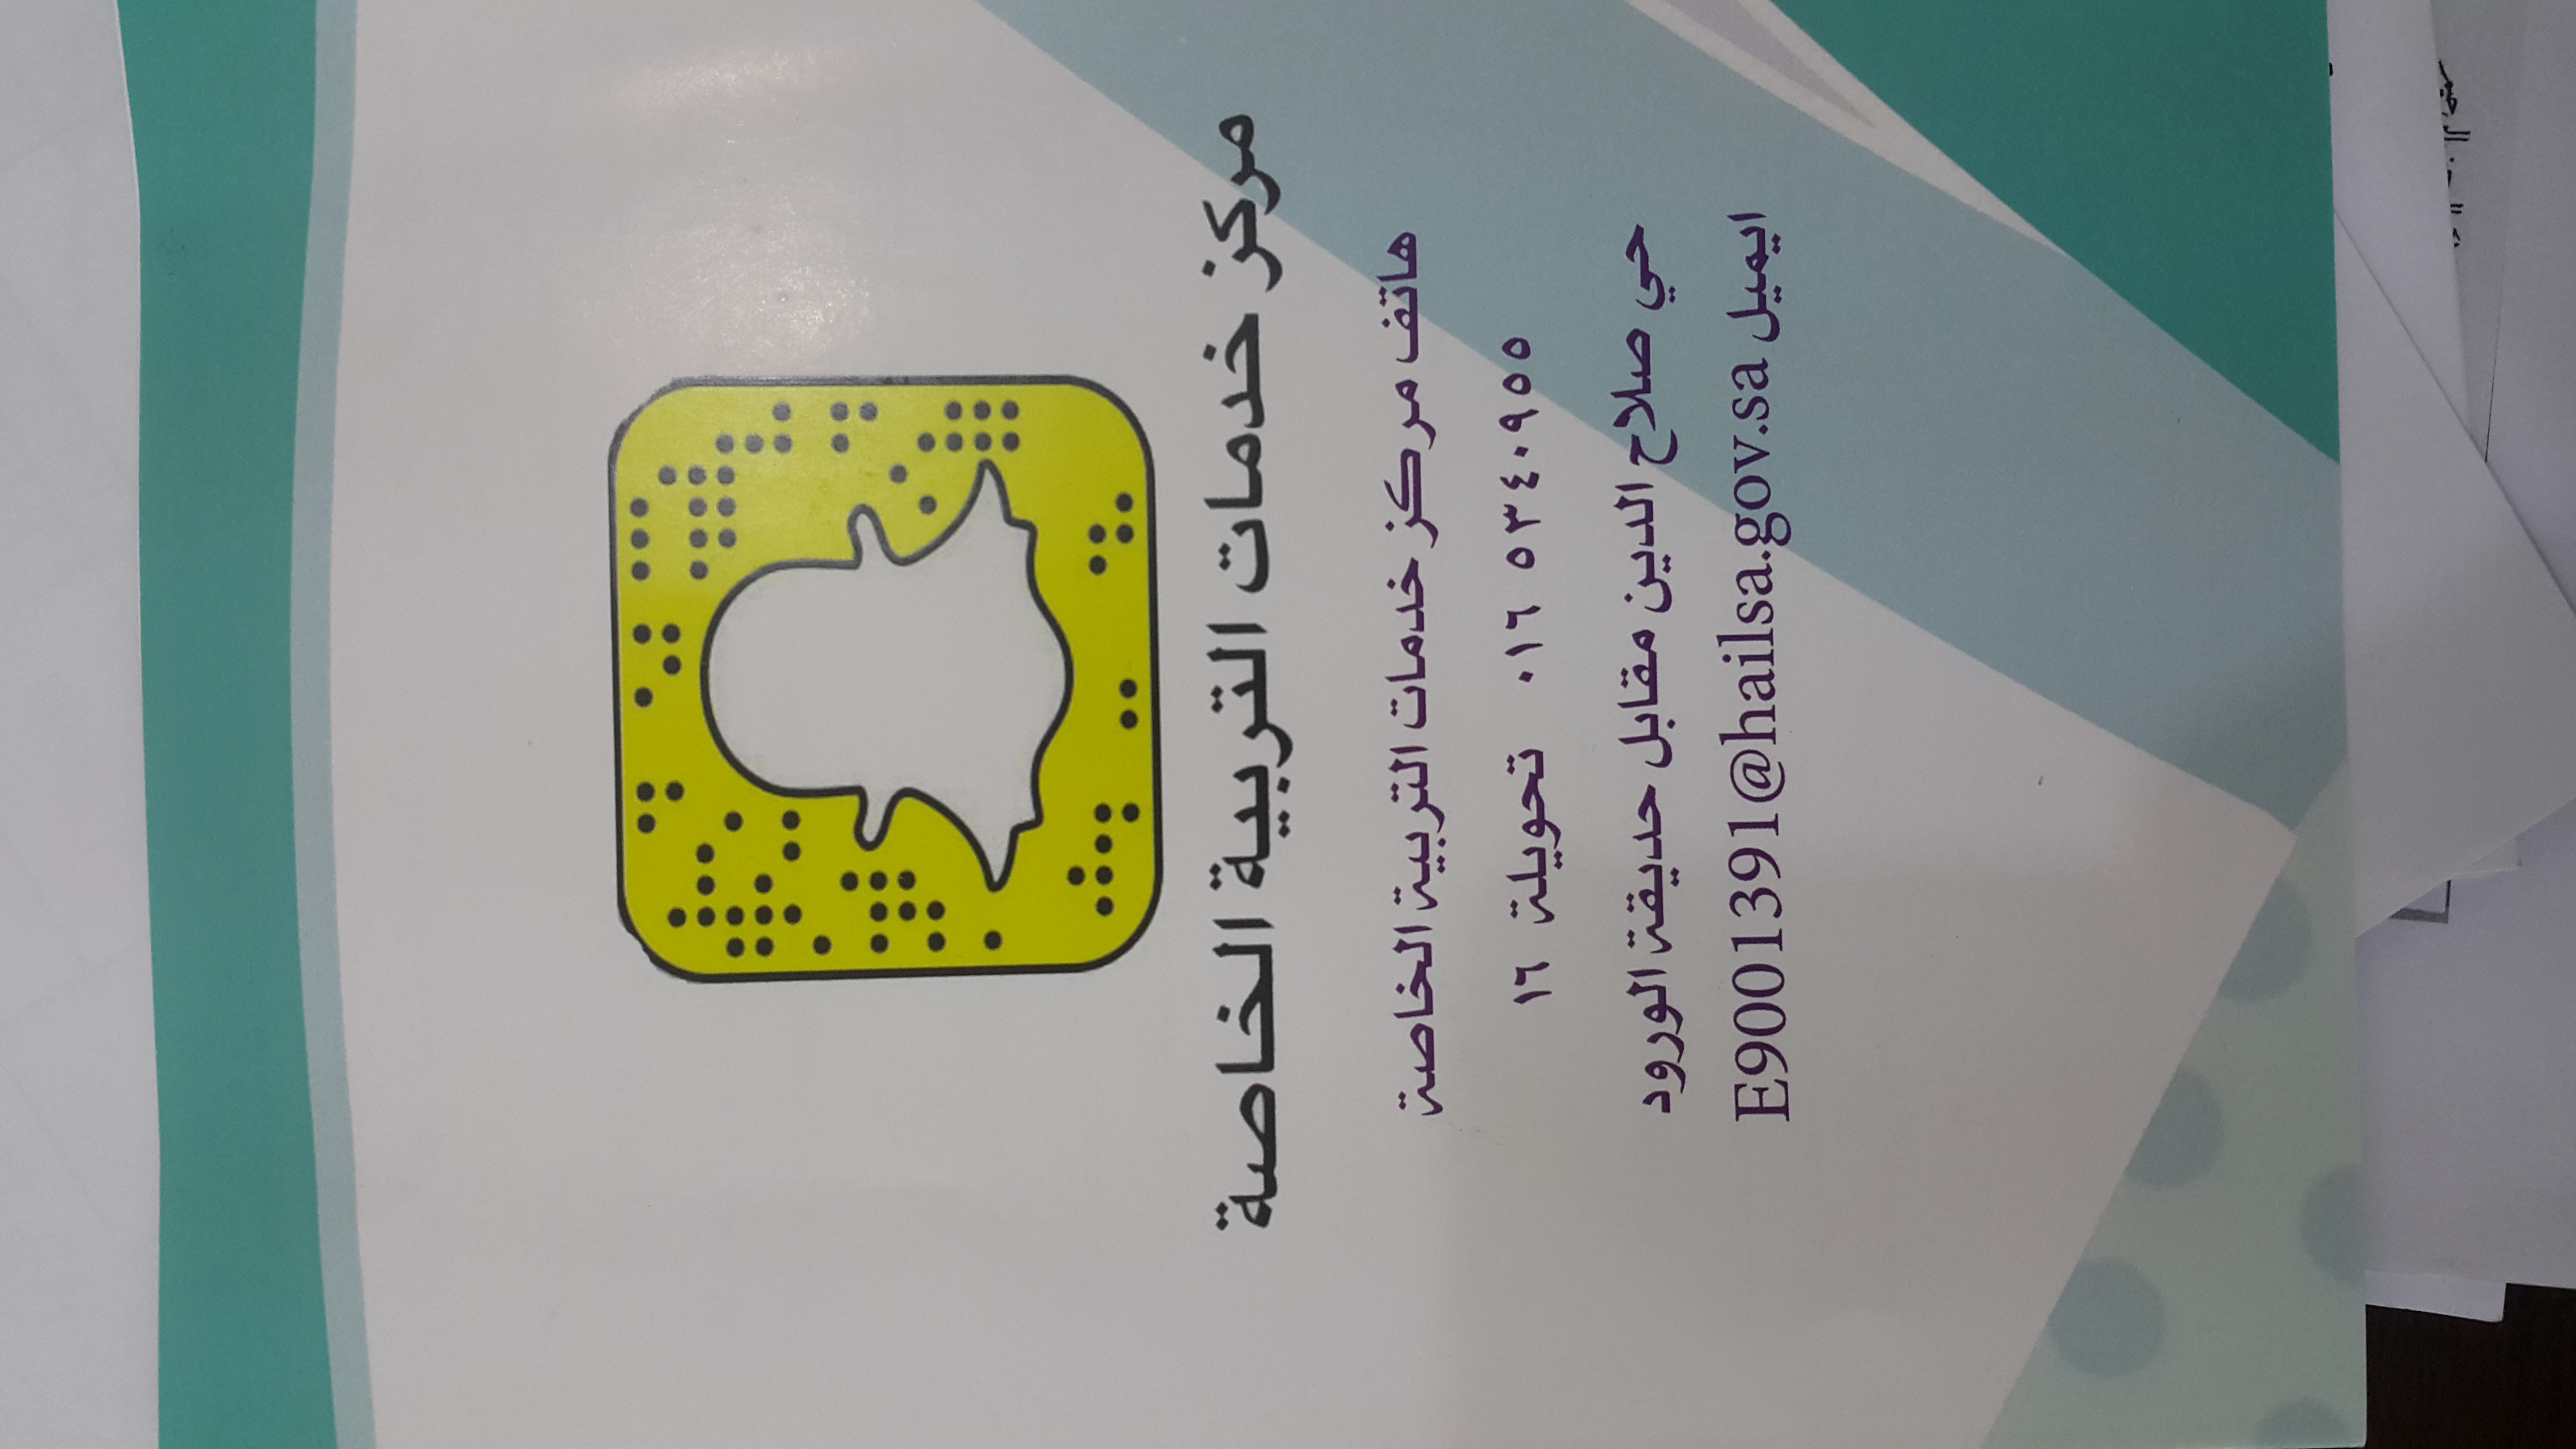 مركز خدمات التربية الخاصة
هاتف مركز خدمات التربية الخاصة
٠١٦ ٥٣٤٠٩٥٥ تحويلة ١٦
حي صلاح الدين مقابل حديقة الورود
ايميل E90013391@hailsa.gov.sa